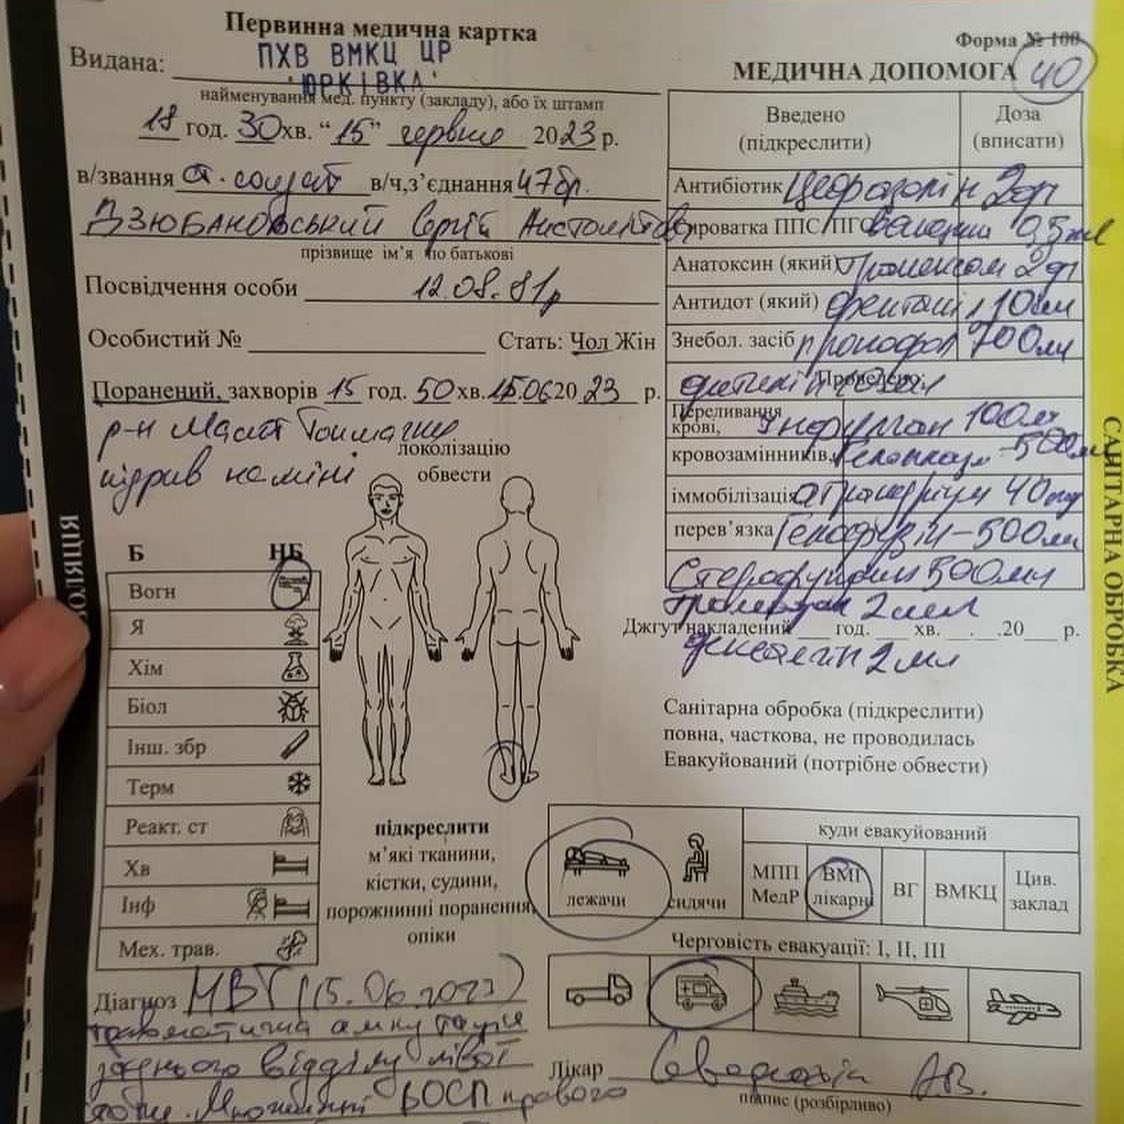 Первинна медична картка
Форма № 100
40
Видана: ПХВ ВМКЦ ЦР
"ЮРКІВКА"
найменування мед. пункту (закладу), або їх штамп
18 год. 30 хв. "15" червня 2023 р.
в/звання ст. солдат в/ч,з’єднання 47 бр.
Сергій
прізвище ім’я по батькові
Посвідчення особи 12.08.81р
Особистий № Стать: Чол Жін
Поранений, захворів 15 год. 50 хв. 15.06 2023 р.
р-н Мала Токмачка
підрив на міні
локолізацію
обвести
Б НБ
Вогн
Я
Хім
Біол
Інш. збр
Терм
Реакт. ст
Хв
Інф
Мех. трав.
підкреслити
м’які тканини,
кістки, судини,
порожнинні поранення,
опіки
Діагноз МВТ (15.06.2023)
травматична ампутація
заднього відділу лівої
стопи. Множинні ВОСП правого
МЕДИЧНА ДОПОМОГА
Введено
(підкреслити)
Доза
(вписати)
Антибіотик Цефазолін 2гр
сироватка ППС/ПГС 0,5 мл
Анатоксин (який) 2гр
Антидот (який) фентаніл 10мл
Знебол. засіб пропофол 700мл
Проведено:
Переливання
крові, Інфулган 100мл
кровозамінників, 500мл
іммобілізація 40мг
перев’язка Гелофузін - 500мл
Стерофундин 500мл
2мл
Джгут накладений год. хв. . .20 р.
2мл
Санітарна обробка (підкреслити)
повна, часткова, не проводилась
Евакуйований (потрібне обвести)
лежачи
сидячи
куди евакуйований
МПП
МедР
ВМГ
лікарні
ВГ
ВМКЦ
Цив.
заклад
Черговість евакуації: I, II, III
Лікар А.В.
підпис (розбірливо)
САНІТАРНА ОБРОБКА